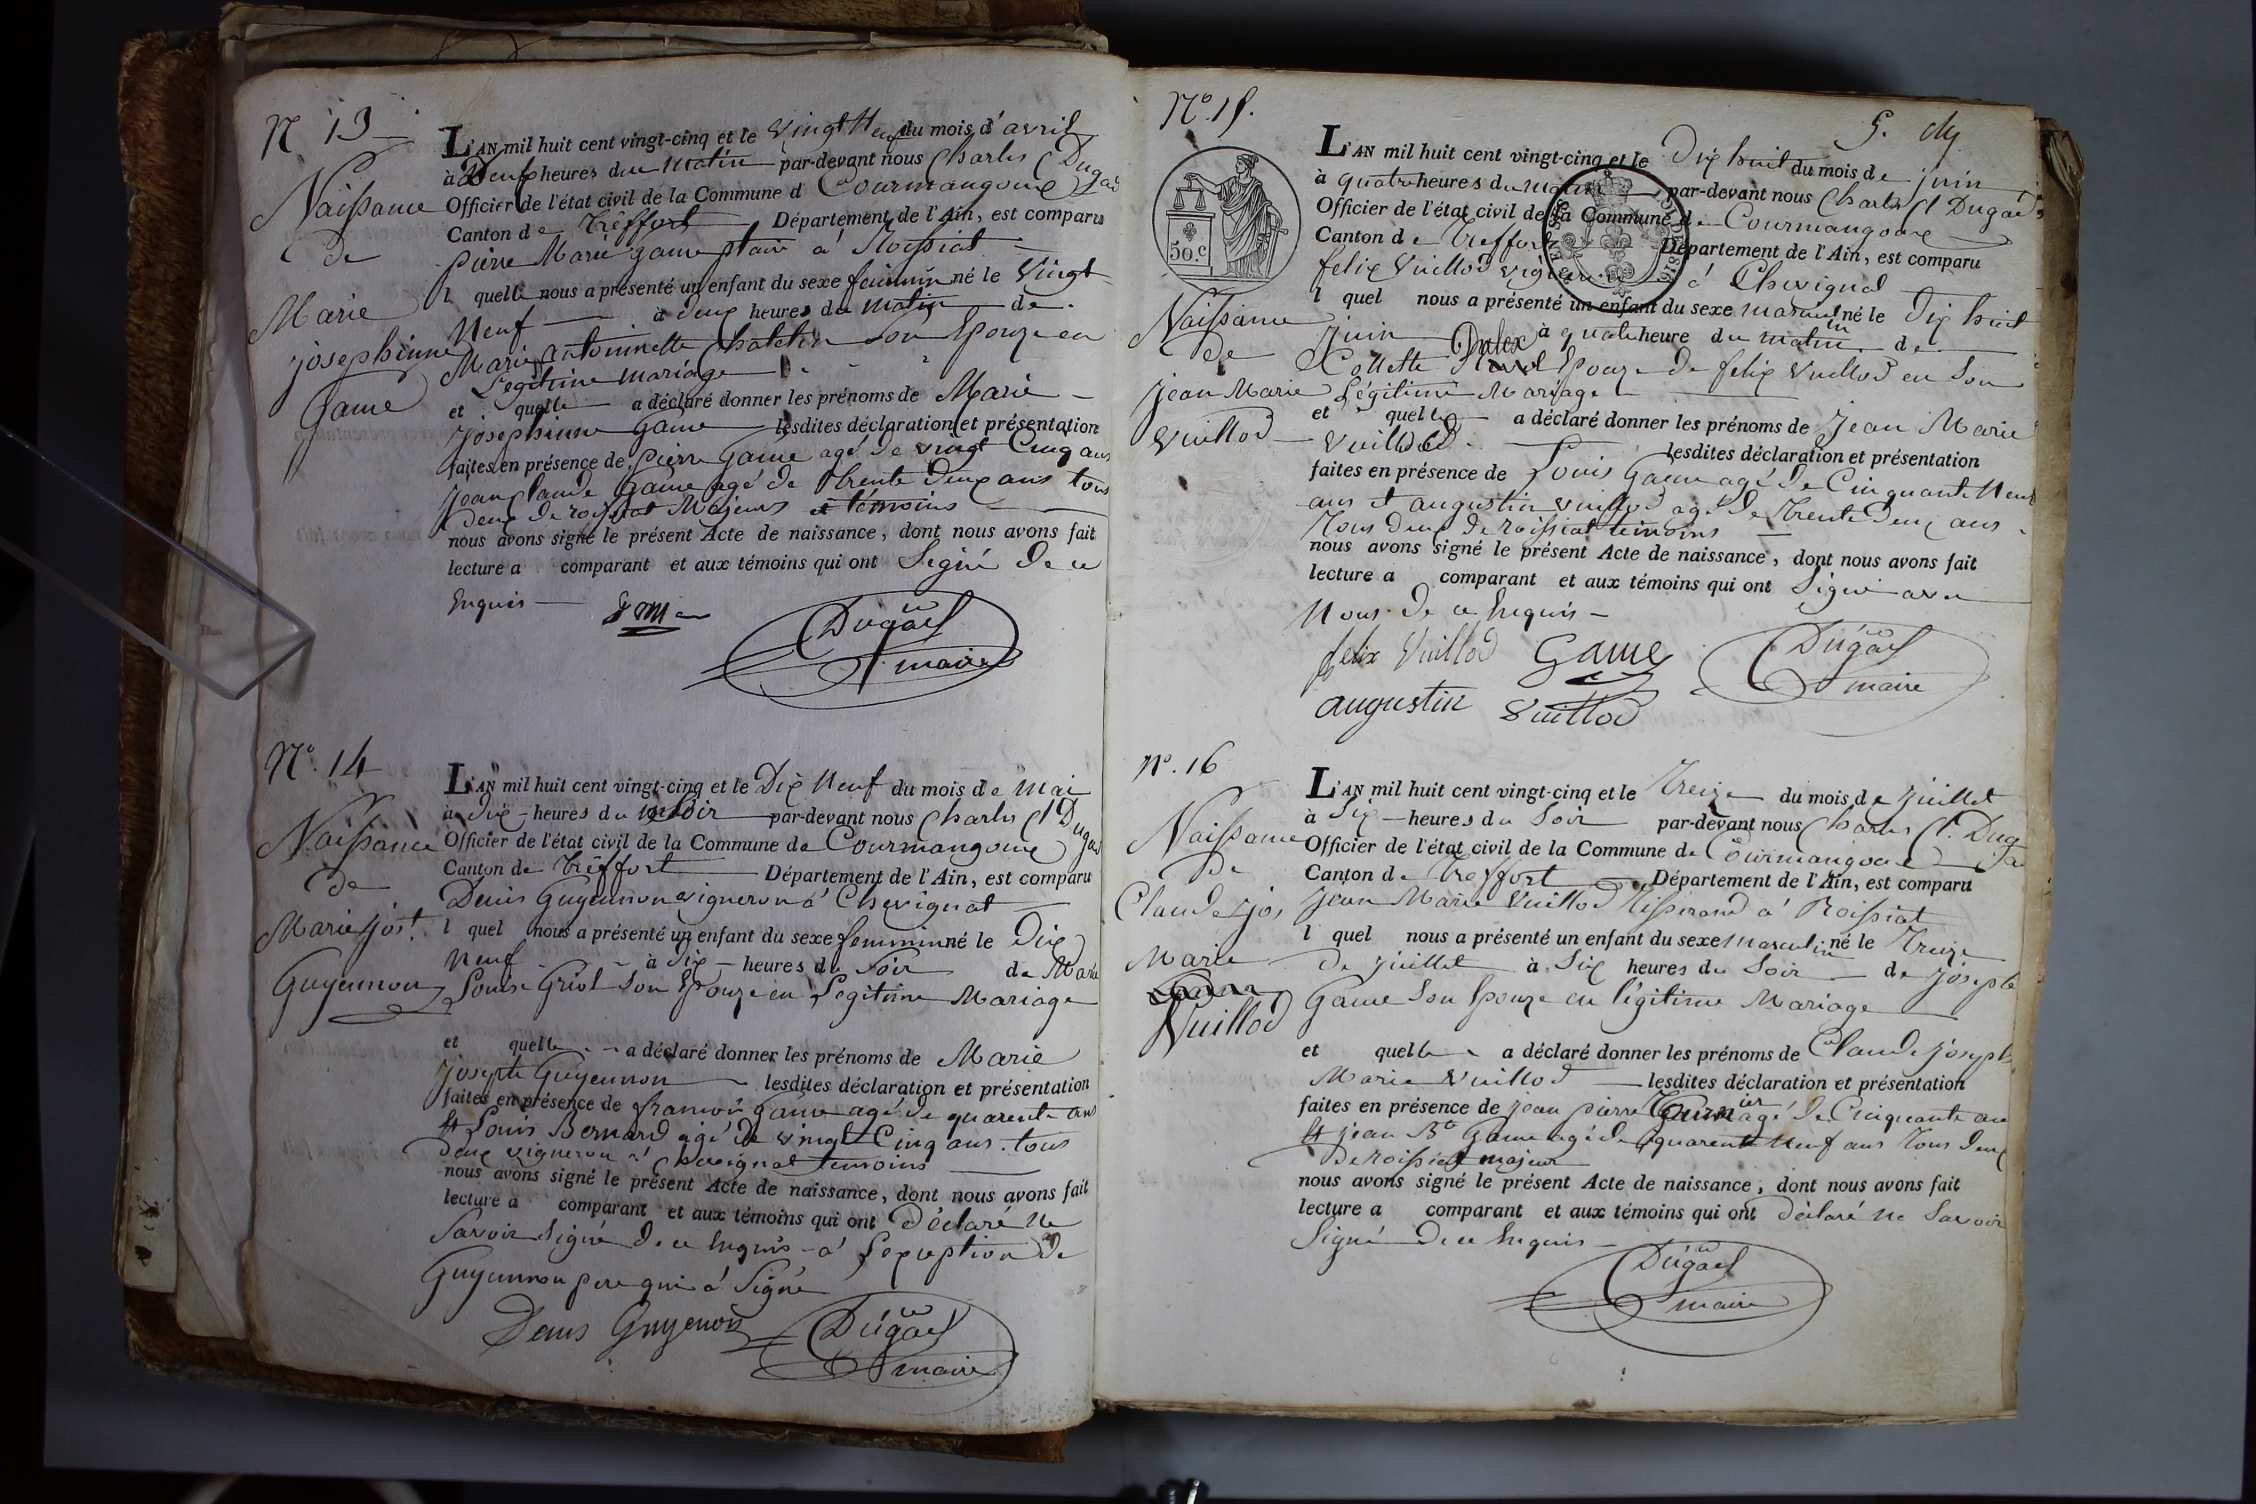 N 13
Naissance
de
Marie
josephinne
Game
L'AN mil huit cent vingt-cinq et le vingt Neuf du mois d'avril
à Deux heures du matin par-devant nous Charles Cl Dugas
Officier de l'état civil de la Commune d Courmangoux
Canton de Tréffort Département de l'Ain, est comparu
pierre Marie game à Roissiat
l quelle nous a présenté un enfant du sexe feminin né le Vingt
Neuf à deux heures du matin de
Marie antoinnette Chatelin son Epouze en
Légitime mariage
et quelle a déclaré donner les prénoms de Marie
Josephinne Game lesdites déclaration et présentation
faites en présence de pierre Game agé de vingt Cinq ans
jean Claude Game agé de trente deux ans tous
deux de roissiat Majeurs et témoins
nous avons signé le présent Acte de naissance, dont nous avons fait
lecture a comparant et aux témoins qui ont Signé de ce
Enquis
Dugas
maire
N°. 14
Naissance
de
Marie jos.t
Guyennon
L'AN mil huit cent vingt-cinq et le Dix Neuf du mois de mai
à dix heures du soir par-devant nous Charles Cl Dugas
Officier de l'état civil de la Commune de Courmangoux
Canton de Tréffort Département de l'Ain, est comparu
Denis Guyennon vigneron à Chevignat
l quel nous a présenté un enfant du sexe feminin né le Dix
Neuf à dix heures du soir de Marie
Louise Griol son Epouze en Legitime Mariage
et quelle a déclaré donner les prénoms de Marie
josephte Guyennon lesdites déclaration et présentation
faites en présence de francois Game agé de quarente ans
et Louis Bernard agé de vingt Cinq ans tous
deux vigneron à Chevignat temoins
nous avons signé le présent Acte de naissance, dont nous avons fait
lecture a comparant et aux témoins qui ont Déclaré ne
Savoir Signé de ce Enquis à L'exception de
Guyennon pere qui à Signé
Denis Guyenon
Dugas
maire
N°. 15.
5.
50.c
Naissance
de
jean Marie
Vuillod
L'AN mil huit cent vingt-cinq et le Dix huit du mois de juin
à quatre heures du matin par-devant nous Charles Cl Dugas
Officier de l'état civil de la Commune de Courmangoux
Canton de Treffort Département de l'Ain, est comparu
felix Vuillod vigneron à Chevignat
l quel nous a présenté un enfant du sexe masculin né le Dix huit
juin à quatre heure du matin de
Collette Epouze de felix Vuillod en Son
Légitime Mariage
et quelle a déclaré donner les prénoms de Jean Marie
Vuillod lesdites déclaration et présentation
faites en présence de Louis Game agé de Cinquante Neuf
ans et augustin vuillod agé de Trente deux ans
Tous deux de roissiat temoins
nous avons signé le présent Acte de naissance, dont nous avons fait
lecture a comparant et aux témoins qui ont Signé avec
Nous de ce Enquis
felix Vuillod Game
Dugas
maire
augustin Vuillod
N°. 16
Naissance
de
Claude jos
Marie
Vuillod
L'AN mil huit cent vingt-cinq et le Treize du mois de juillet
à Six heures du Soir par-devant nous Charles Cl. Dugas
Officier de l'état civil de la Commune de Courmangoux
Canton de Treffort Département de l'Ain, est comparu
Jean Marie Vuillod Tisserand à Roissiat
l quel nous a présenté un enfant du sexe masculin né le Treize
de juillet à Six heures du Soir de josephte
Game Son Epouze en légitime Mariage
et quelle a déclaré donner les prénoms de Claude joseph
Marie Vuillod lesdites déclaration et présentation
faites en présence de jean pierre agé de Cinquante ans
et jean B.te Game agé de quarente neuf ans Tous deux
de roissiat majeur
nous avons signé le présent Acte de naissance, dont nous avons fait
lecture a comparant et aux témoins qui ont Déclaré ne Savoir
Signé de ce Enquis
Dugas
maire